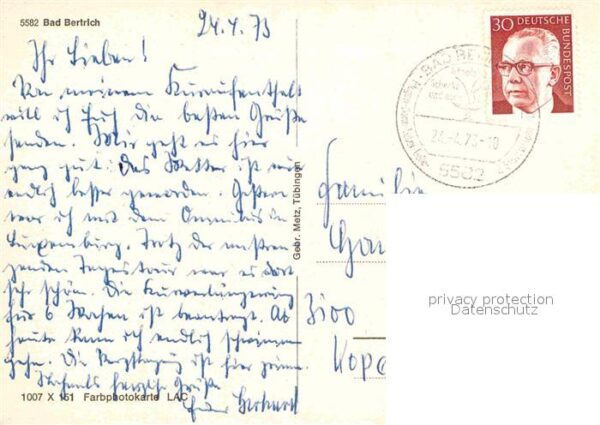 5582 Bad Bertrich
24.4.73
Ihr Lieben!
Von meinem Kuraufenthalt
will ich Euch die besten Grüße
senden. Mir geht es hier
ganz gut. Das Wetter ist nun
endlich besser geworden. Gestern
war ich mit dem Omnibus in
Luxemburg. Trotz der anstren
genden Tagestour war es dort
sehr schön. Die Kurverlängerung
für 6 Wochen ist beantragt. Ab
heute kann ich endlich schwimmen
gehen. Die Verpflegung ist hier prima.
Nochmals herzliche Grüße
Euer Gerhard
1007 X 161 Farbphotokarte LAC
Gebr. Metz, Tübingen
30 DEUTSCHE
BUNDESPOST
BAD BE
-4.73-10
5582
Familie
3100
privacy protection
Datenschutz